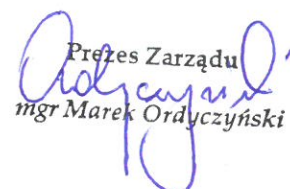 Prezes Zarządu
mgr Marek Ordyczyński